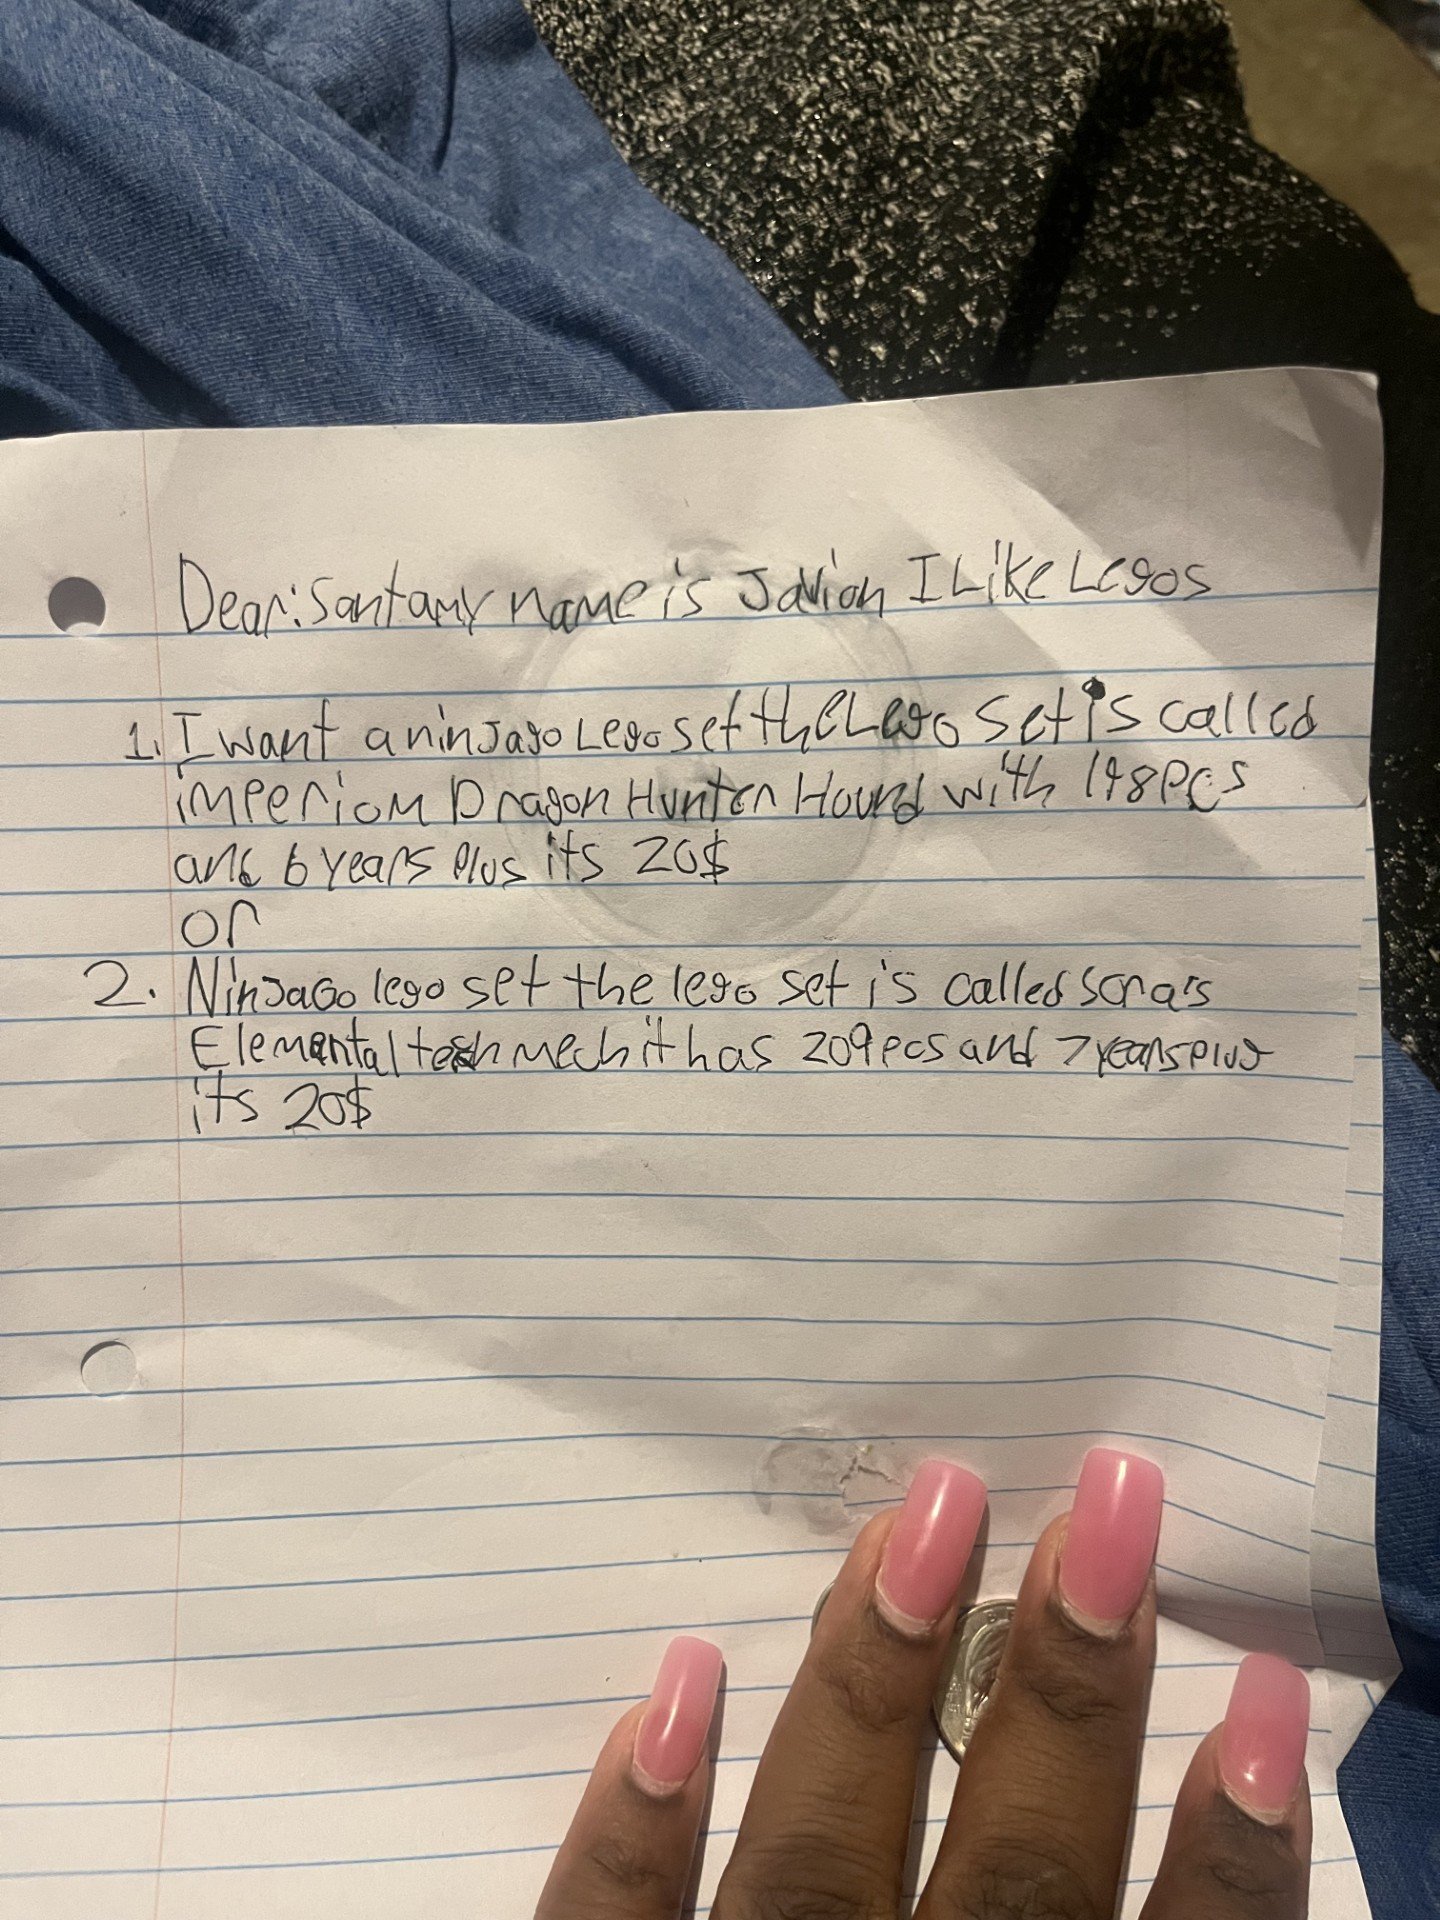 Dear: Santa my name is Javion I Like Legos
1. I want a ninjago Lego set the Lego set is called
imperiom Dragon Hunter Hound with 198 pcs
and 6 years plus its 20$
or
2. NinJaGo lego set the lego set is called sora's
Elemental tech mech it has 209 pcs and 7 years plus
its 20$